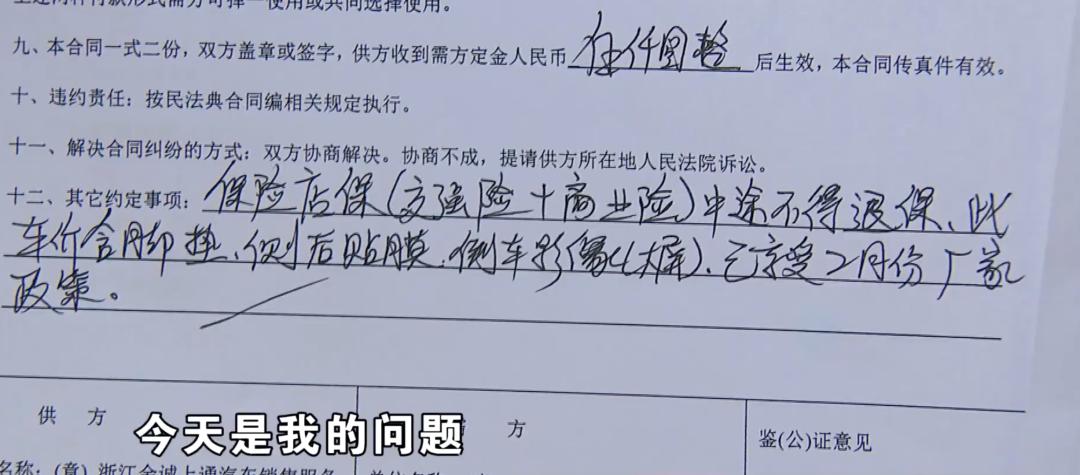 上述两种付款形式需方可择一使用或共同选择使用。
九、本合同一式二份，双方盖章或签字，供方收到需方定金人民币 伍仟圆整 后生效，本合同传真件有效。
十、违约责任：按民法典合同编相关规定执行。
十一、解决合同纠纷的方式：双方协商解决。协商不成，提请供方所在地人民法院诉讼。
十二、其它约定事项：保险店保（交强险+商业险）中途不得退保、此
车价含脚垫、侧后贴膜、倒车影像（大屏）、已享受2月份厂家
政策。
供 方 方 鉴(公)证意见
今天是我的问题
名称：(章) 浙江金诚上通汽车销售服务